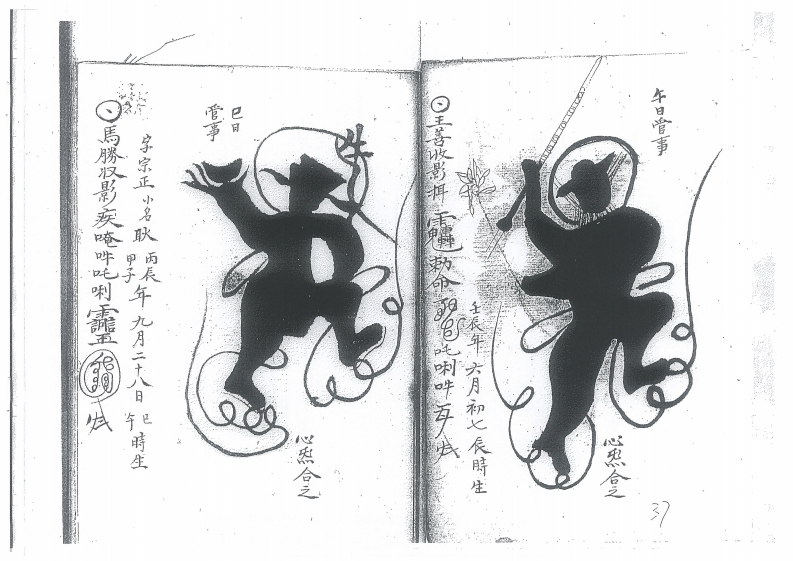 午日管事
王善收影搱
勅命
吒唎吽
壬辰年 六月初七辰時生
心炁合之
37
巳日
管事
字宗正 小名耿 丙辰
甲子 年 九月二十八日 巳
午 時生
馬勝收影疾唵吽吒唎
心炁合之